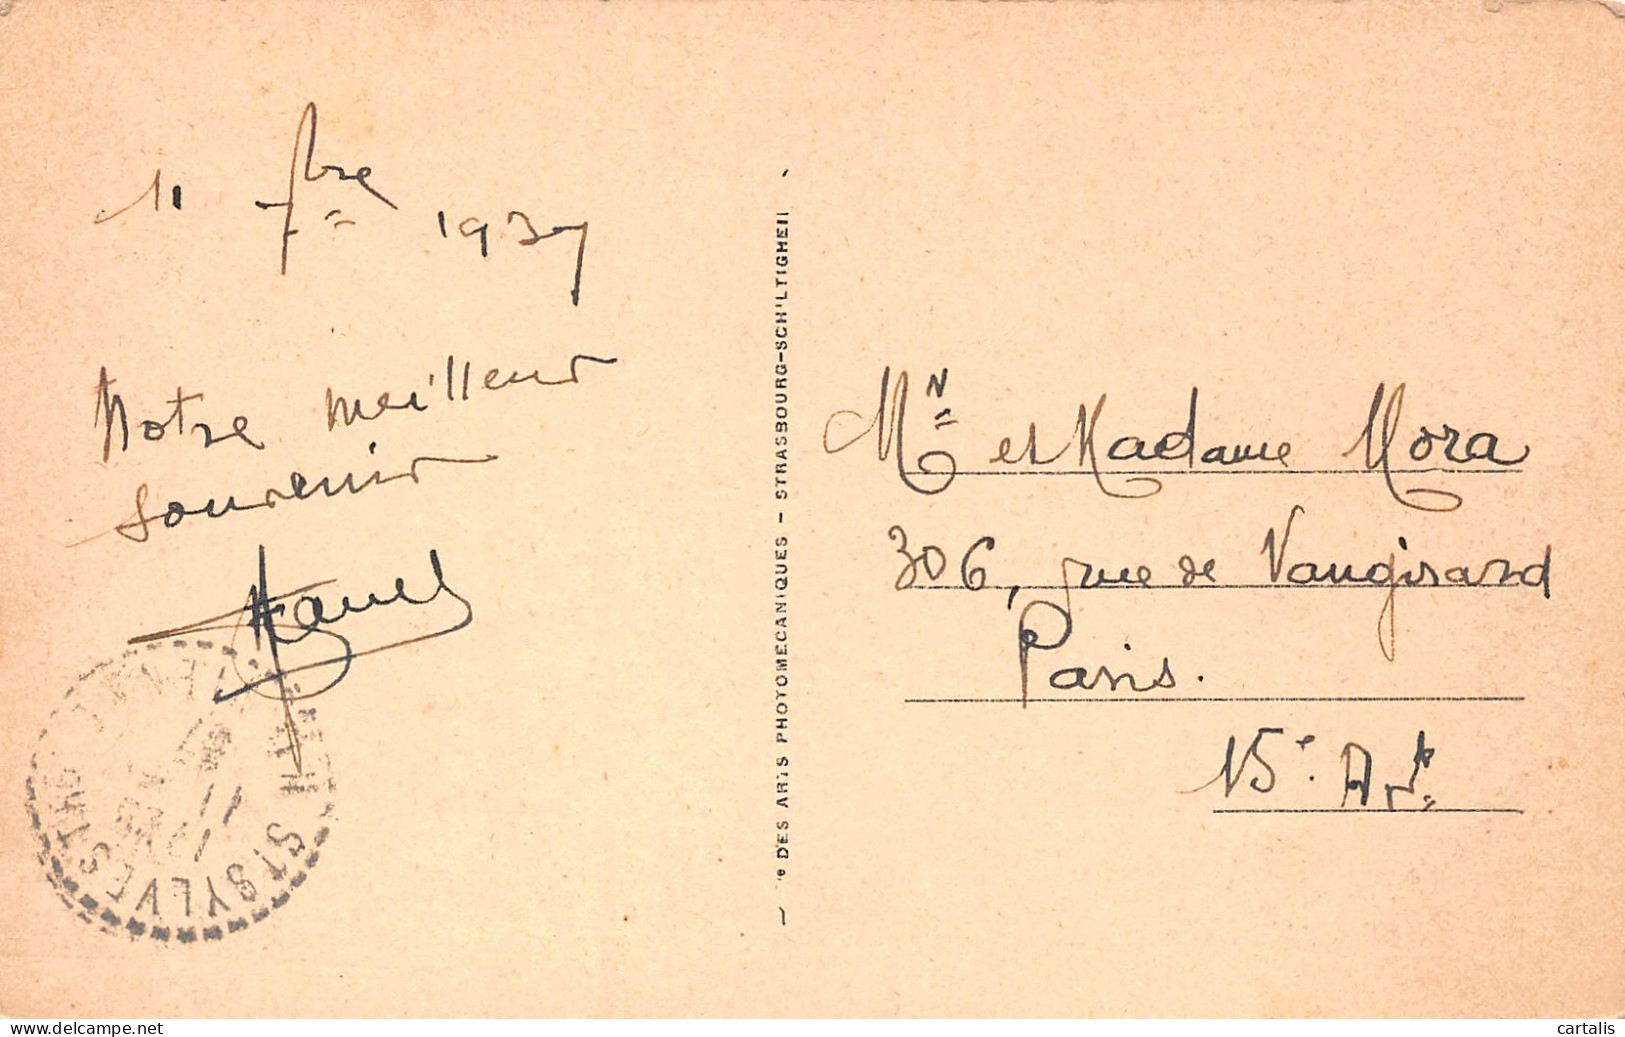 11 7bre 1937
Notre meilleur
souvenir
Mr et Madame Mora
306, rue de Vaugirard
Paris.
15e Art.
ie DES ARTS PHOTOMECANIQUES - STRASBOURG-SCHILTIGHEIM
ST SYLVESTRE
11
cartalis